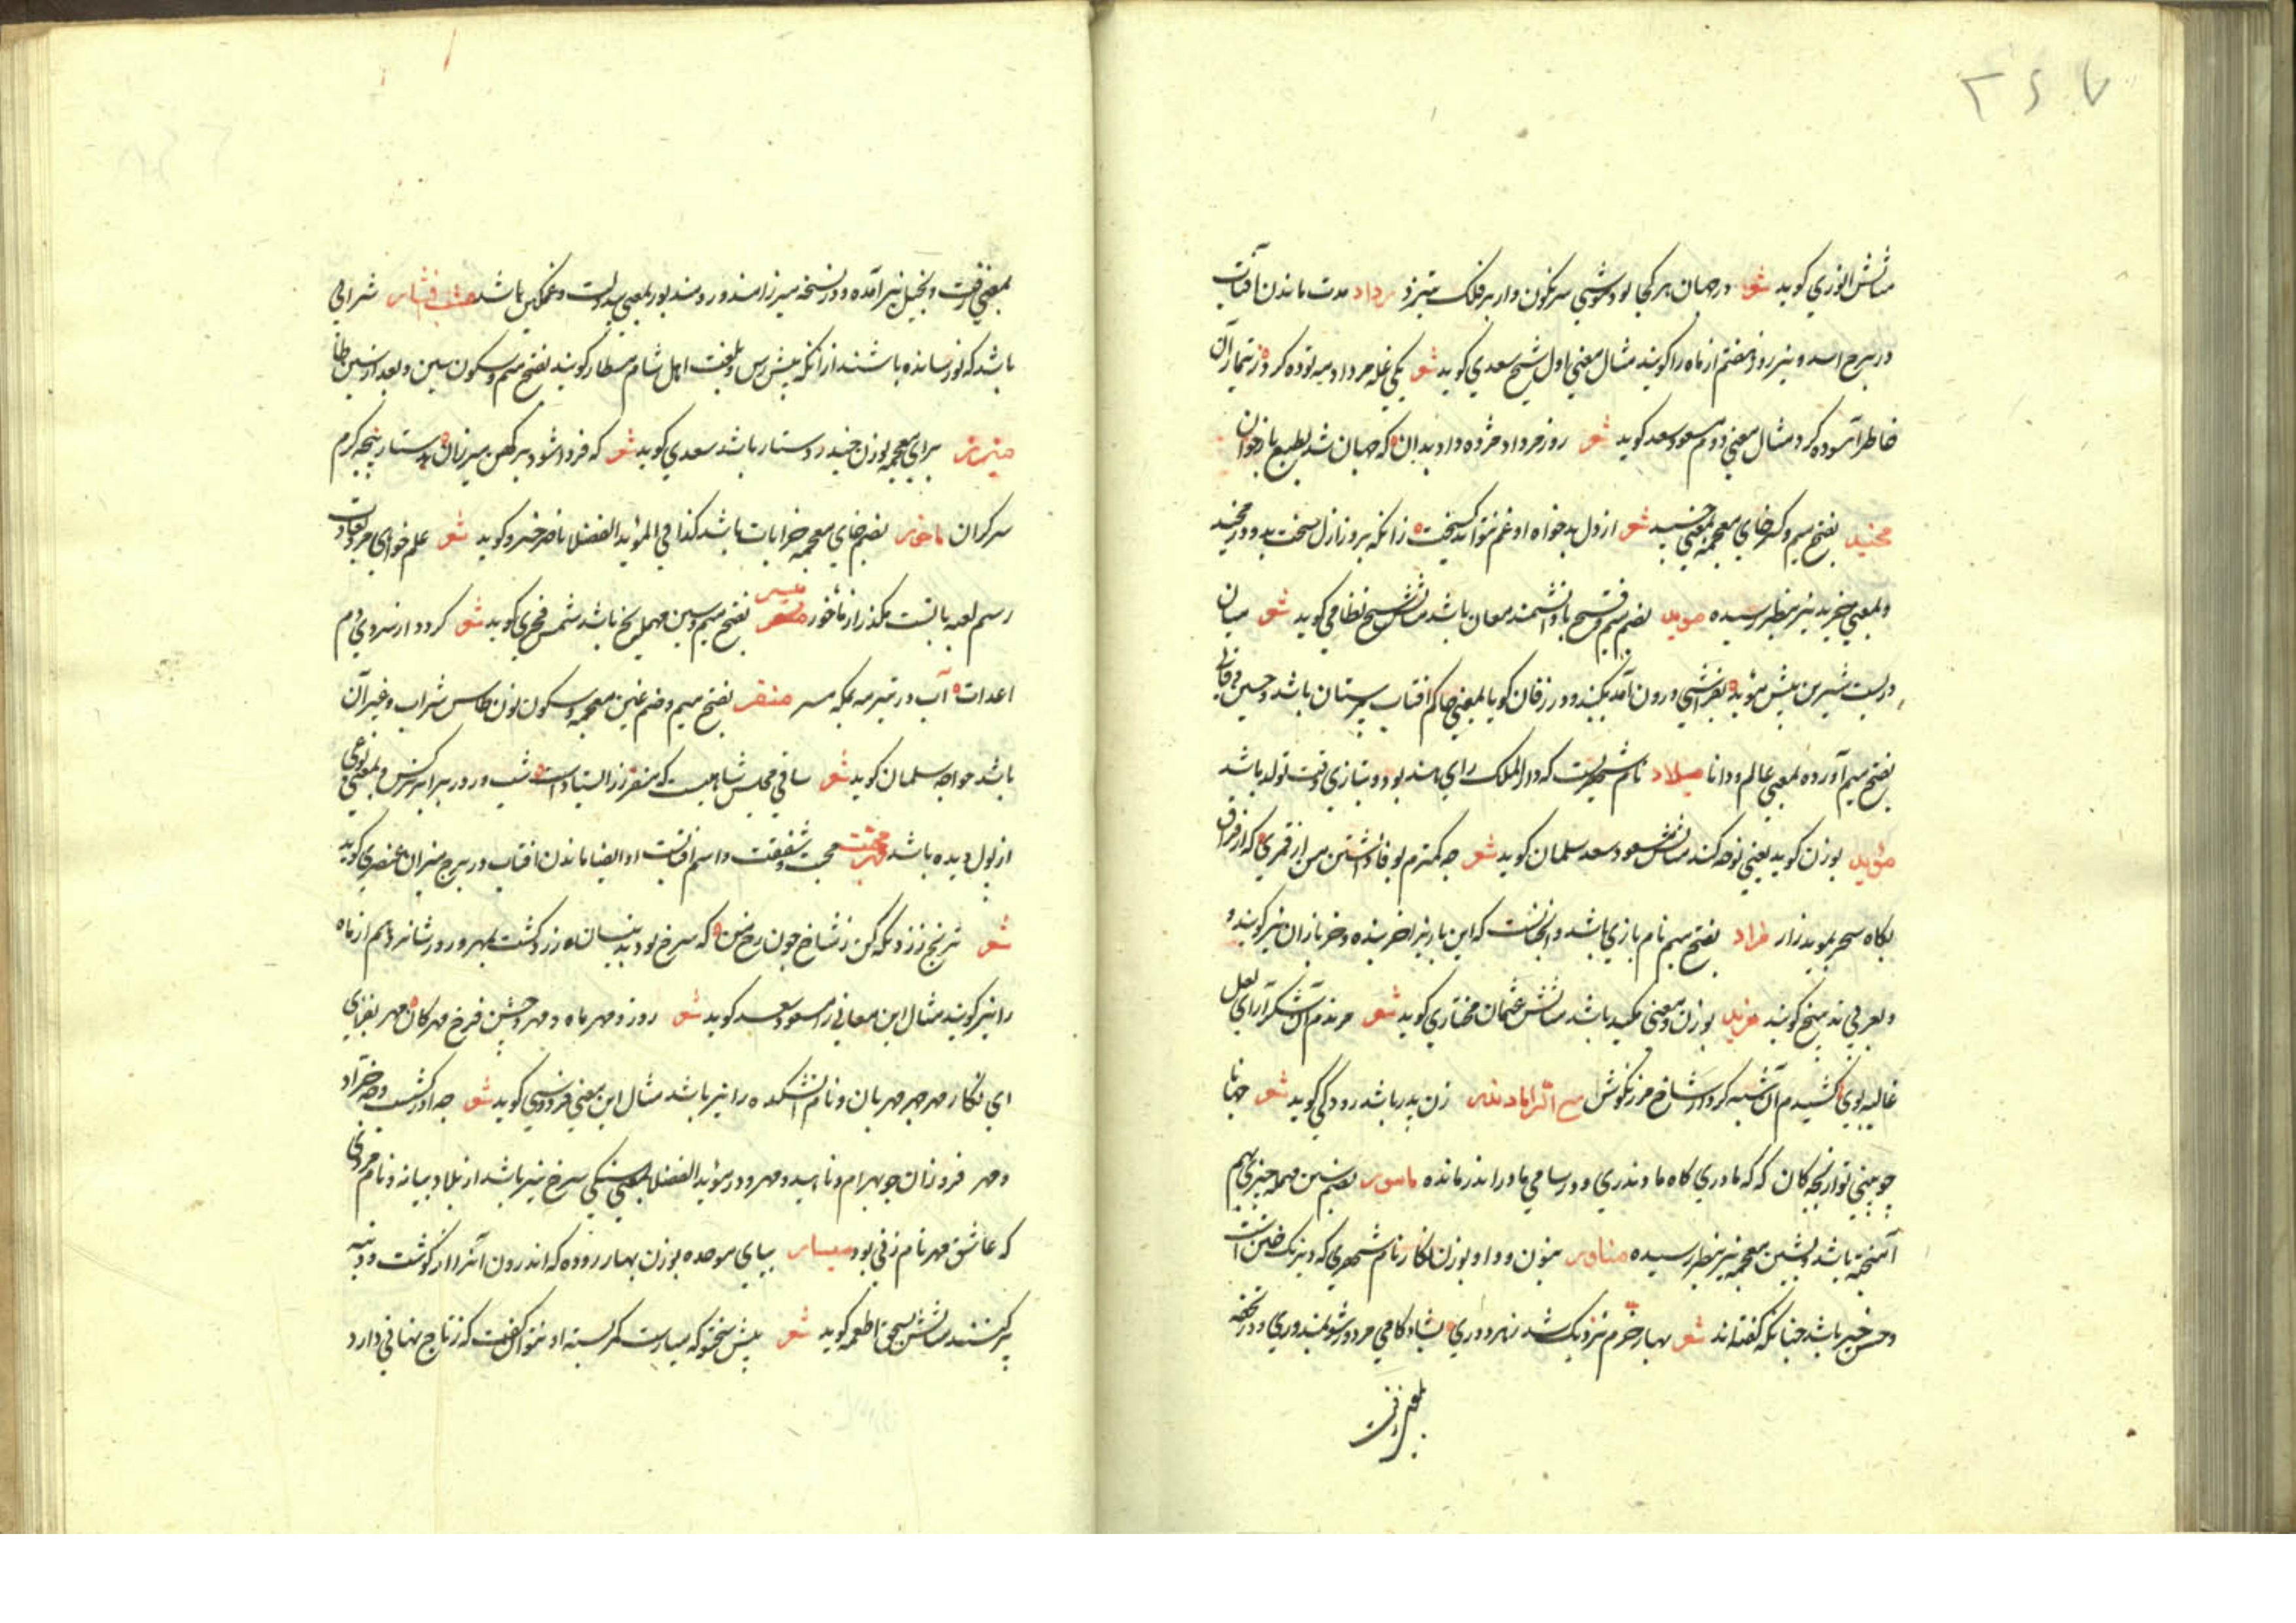 ۳۶۷
مثالش انوری کوید شعر در جهان هر کجا بود موشی سرنکون وار بر فلک متیزد مرداد مدت ماندن آفتاب
در برج اسد و نیز روز هفتم از ماه را کویند مثال معنی اول شیخ سعدی کوید شعر یکی غله مرداد مه توده کرد ز تیمار آن
خاطر آسوده کرد مثال معنی دوم مسعود سعد کوید شعر روز مرداد مژده داد بدان که جهان شد بطبع باز جوان
مخید بفتح میم و کسر خای معجمه بمعنی جنبید شعر از دل بدخواه او غم نتواند کسیخت زانکه بروز ازل سخت بدو در مخید
و بمعنی خزید نیز بنظر رسیده موبد بضم میم و فتح با دانشمند مغان باشد مثالش شیخ نظامی کوید شعر میان
دربست شیرین پیش موبد بفراشی درون آمد بکنبد و در زفان کویا بمعنی حاکم افتاب پرستان باشد و حسین وفایی
بفتح میم آورده بمعنی عالم و دانا میلاد نام شهریست که دار الملک رای هند بود و بتازی وقت تولد باشد
موید بوزن کوید یعنی نوحه کند مثالش مسعود سعد سلمان کوید شعر چه کمترم بوفا داشتن من از قمری که از فراق
بکاه سحر بموید زار مراد بفتح میم نام بازی باشد و آنچنانست که این بار نیز اخر بنده و خر بازان نیز کویند و
و بعربی تدبیخ کویند مزید بوزن و معنی مکید باشد مثالش عثمان مختاری کوید شعر مزیدم آن شکر آرای لعل
غالیه بوی کشیدم آن شبه کردار شاخ مرزنکوش مع الراء مادندر زن پدر باشد رودکی کوید شعر جهانا
چو بینی تو از بچه کان که که مادری کاه مادندری و در سامی مادراندر مانده ماسور بضم سین مهمله چیزی بهم
آمیخته باشد و بشین معجمه نیز بنظر رسیده مناور بنون و واو بوزن نکار نام شهری که دیرنک ختن است
و حسن خیز باشد چنانکه کفته اند شعر بهار خرم نزدیک شد ز دوری بشادکامی مردور شو نمندوری و در نسخه
بمعنی زفت
بمعنی زفت و بخیل نیز آمده و در نسخه میرزا مندور و مندبور بمعنی بیدولت و غمکین باشد مشتفشار شرابی
باشد که نو رسانده باشند از انکه پیش رس و بلغت اهل شام مسطار کویند بفتح میم و سکون سین و بعد از سین طا
میزر برای معجمه بوزن حیدر دستار باشد سعدی کوید شعر که فردا شود بر کهن میرزان بدستار پنجه کزم
سرکران ماخور بضم خای معجمه خرابات باشد کذا فی المؤید الفضلا ناصر خسرو کوید شعر علم خواهی مرو بعادت
رسم لعبه بالتست بکذر از ماخور مسر بفتح میم و سین مهمله یخ باشد شمس فخری کوید شعر کردد از سردی دم
اعدات آب در تیرمه بمکه مسر منغر بفتح میم و ضم غین معجمه و سکون نون طاس شراب و غیر آن
باشد خواجه سلمان کوید شعر ساقی مجلس شاهیست که منغر زر ایستادست شب و روز برابر نرکس و بمعنی نوعی
از پول دیده باشد مهر محبت و شفقت و اسم افتاب و ایضا ماندن افتاب در برج میزان عنصری کوید
شعر ترنج زرد نکه کن ز شاخ چون رخ من که سرخ بود بنیسان و زرد کشت بمهر و روز شانزدهم از ماه
را نیز کویند مثال این معانی را مسعود سعد کوید شعر روز و مهر ماه و مهر و جشن فرخ مهرکان مهر بفزای
ای نکار مهر چهر مهربان و نام آتشکده را نیز باشد مثال این معنی فردوسی کوید شعر چه آذرکشسب و چه خراد
و مهر فروزان چو بهرام و ناهید و مهر و در مؤید الفضلا بمعنی سنکی سرخ نیز باشد از بلاد میانه و نام مردی
که عاشق مهر نام زنی بود مبسار ببای موحده بوزن بهار روده که اندرون آنرا از کوشت و دنبه
پر کنند مثالش بسحق اطعمه کوید شعر پیش سختو که مبارست کمر بسته او نتوان کفت که ز تاج نهانی دارد